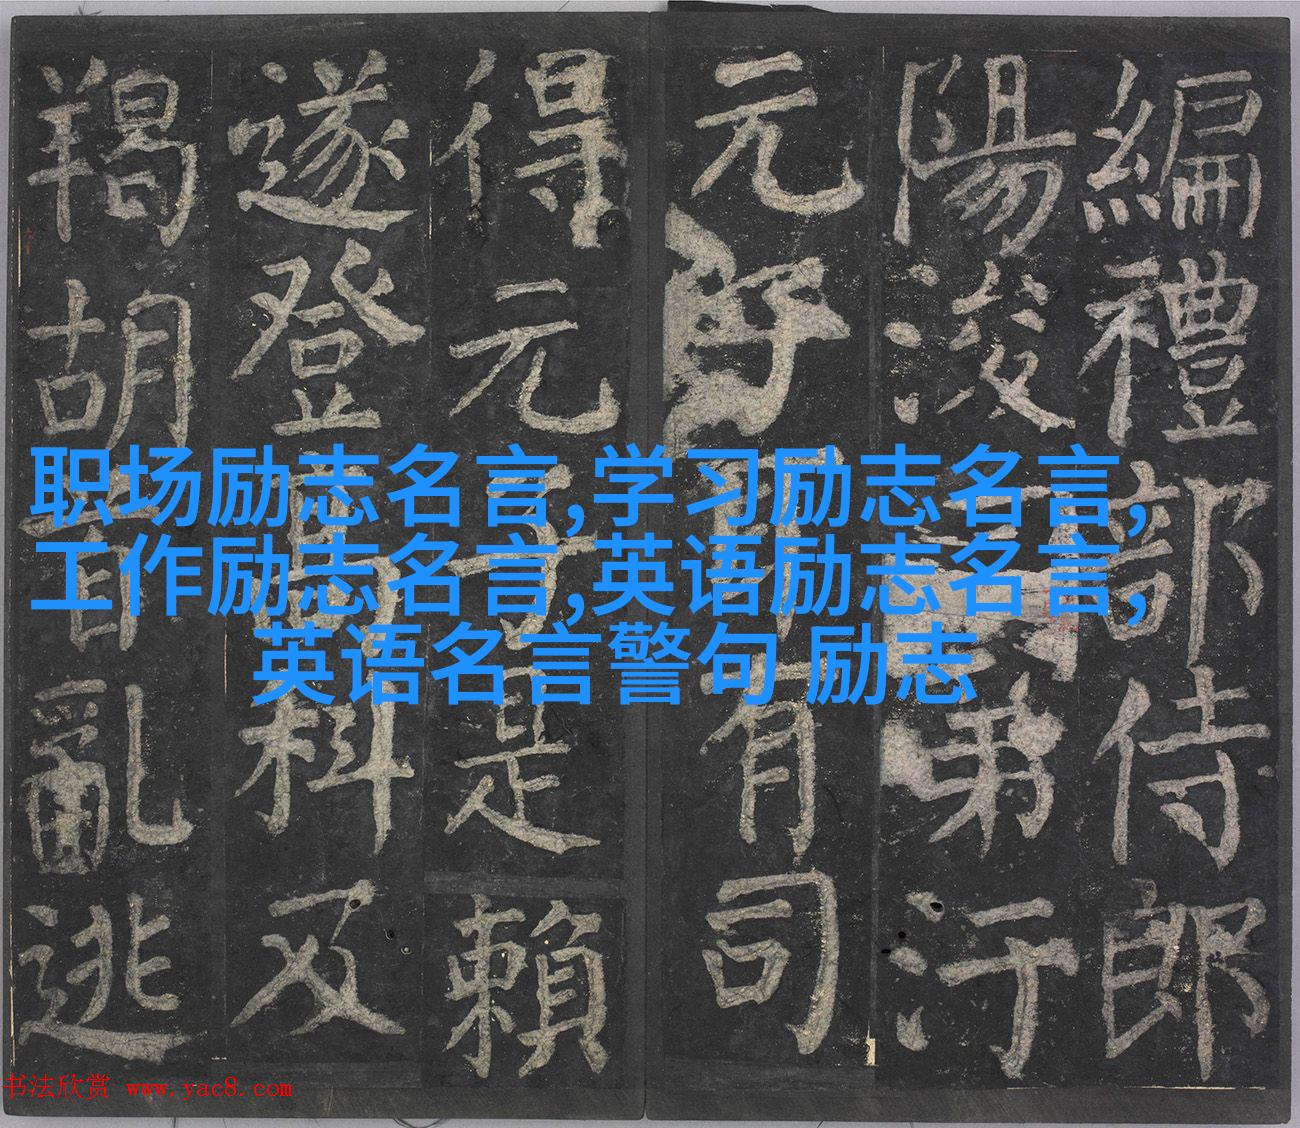 編禮部侍郎
陽浚弟汙
元子有司
得元子是賴
遂登高科及
羯胡首亂逃
职场励志名言,学习励志名言,
工作励志名言,英语励志名言,
英语名言警句 励志
书法欣赏 www.yac8.com